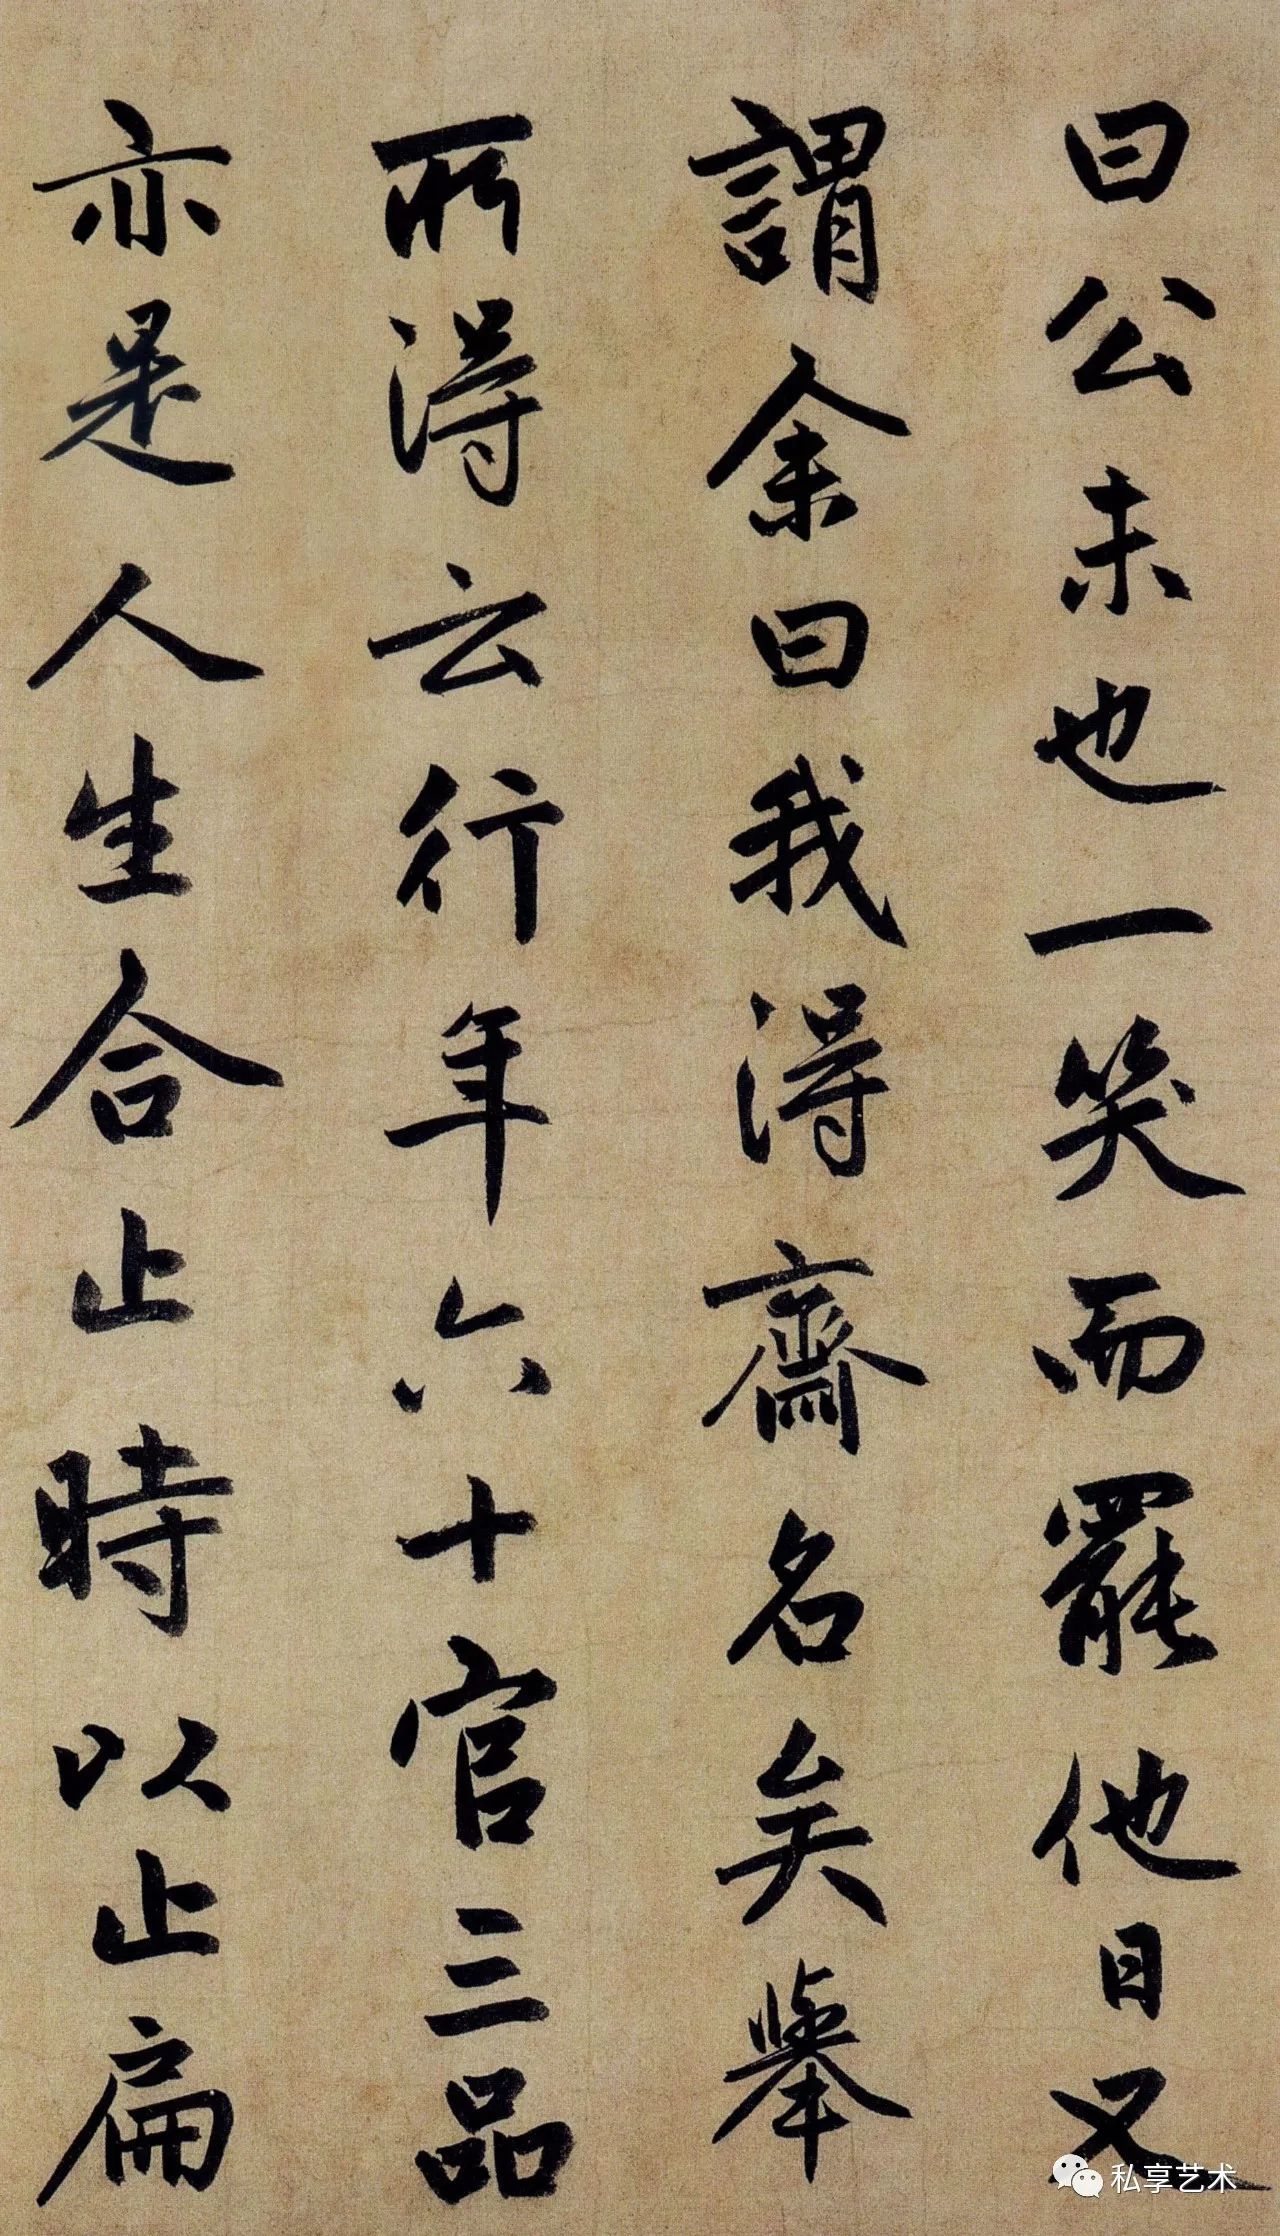 曰公未也一笑而罷他日又
謂余曰我得齋名矣舉
所得云行年六十官三品
亦是人生合止時以止扁
私享艺术